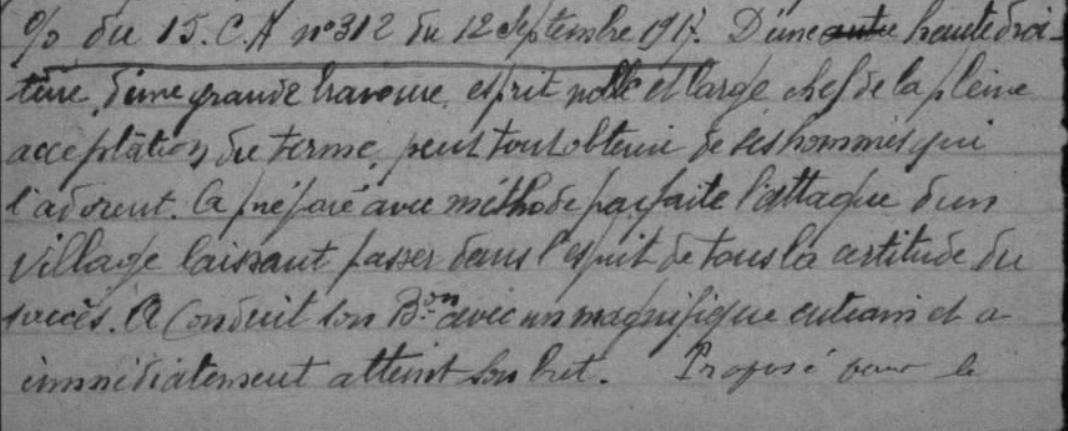 % du 15. C.A n° 312 du 12 Septembre 1917. D'une autre haute droi-
ture, d'une grande bravoure, esprit noble et large chef de la pleine
acceptation du terme, peut tout obtenir de ses hommes qui
l'adorent. A préparé avec méthode parfaite l'attaque d'un
village laissant passer dans l'esprit de tous la certitude du
succès. A conduit son B.on avec un magnifique entrain et a
immédiatement atteint son but. Proposé pour le